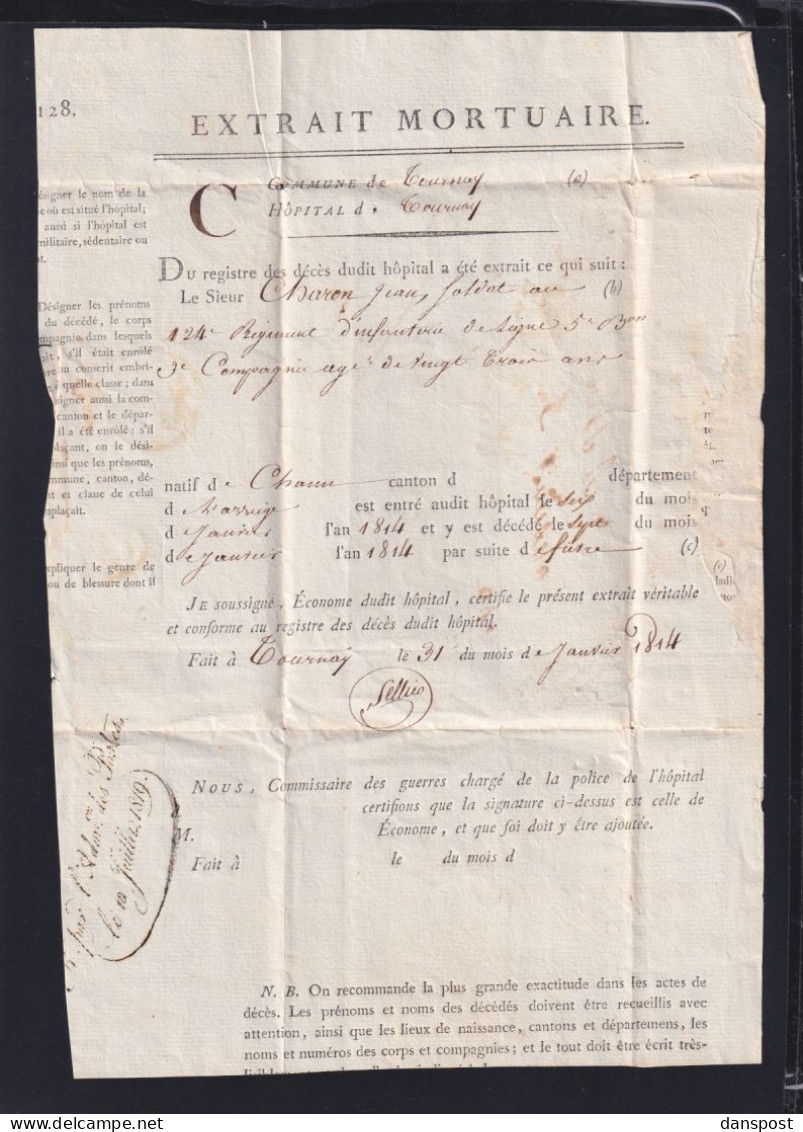 128.
EXTRAIT MORTUAIRE.
COMMUNE de Tournay (a)
HÔPITAL de Tournay
ésigner le nom de la
e où est situé l'hôpital;
aussi si l'hôpital est
militaire, sédentaire ou
nt.
Du registre des décès dudit hôpital a été extrait ce qui suit :
Le Sieur Charon Jean, soldat au (b)
124e Regiment d'infanterie de Ligne 5e Bon
3e Compagnie agé de vingt trois ans
Désigner les prénoms
du décédé, le corps
mpagnie dans lesquels
ait, s'il était enrôlé
re ou conscrit embri-
quelle classe; dans
signer aussi la com-
canton et le dépar-
il a été enrôlé: s'il
plaçant, on le dési-
insi que les prénoms,
mmune, canton, dé-
nt et classe de celui
mplaçait.
natif de canton d département
d est entré audit hôpital le six du mois
d Janvier l'an 1814 et y est décédé le sept du mois
de Janvier l'an 1814 par suite de fièvre (c)
xpliquer le genre de
ou de blessure dont il
(c)
ladi
mor
JE soussigné, Économe dudit hôpital, certifie le présent extrait véritable
et conforme au registre des décès dudit hôpital.
Fait à Tournay le 31 du mois de Janvier 1814
NOUS, Commissaire des guerres chargé de la police de l'hôpital
certifions que la signature ci-dessus est celle de
M. Économe, et que foi doit y être ajoutée.
Fait à le du mois d
par l'Adm.on des Postes,
le 12 Juillet 1819.
N. B. On recommande la plus grande exactitude dans les actes de
décès. Les prénoms et noms des décédés doivent être recueillis avec
attention, ainsi que les lieux de naissance, cantons et départemens, les
noms et numéros des corps et compagnies; et le tout doit être écrit très-
danspost